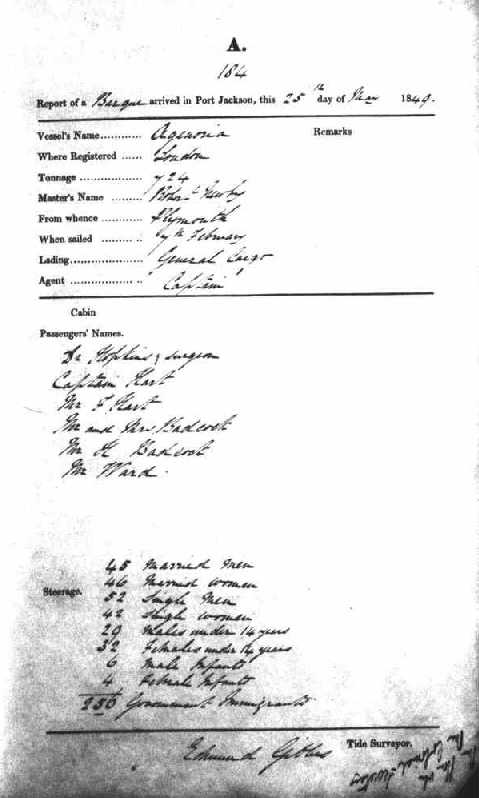 A.
184
Report of a Barque arrived in Port Jackson, this 25th day of 1849.
Vessel's Name............ Agenoria
Remarks
Where Registered ...... London
Tonnage .................. 724
Master's Name ......... Newby
From whence ............ Plymouth
When sailed ............. 7th February
Lading..................... General Cargo
Agent ..................... Captain
Cabin
Passengers' Names.
Dr Hopkins, surgeon
Captain Hart
Mr F Hart
Mr and Mrs Badcock
Mr H Badcock
Mr Ward.
45 Married Men
46 Married Women
Steerage.
52 Single Men
42 Single Women
29 Males under 14 years
32 Females under 14 years
6 Male Infants
4 Female Infants
256 Government Immigrants
Edmund Gibbes Tide Surveyor.